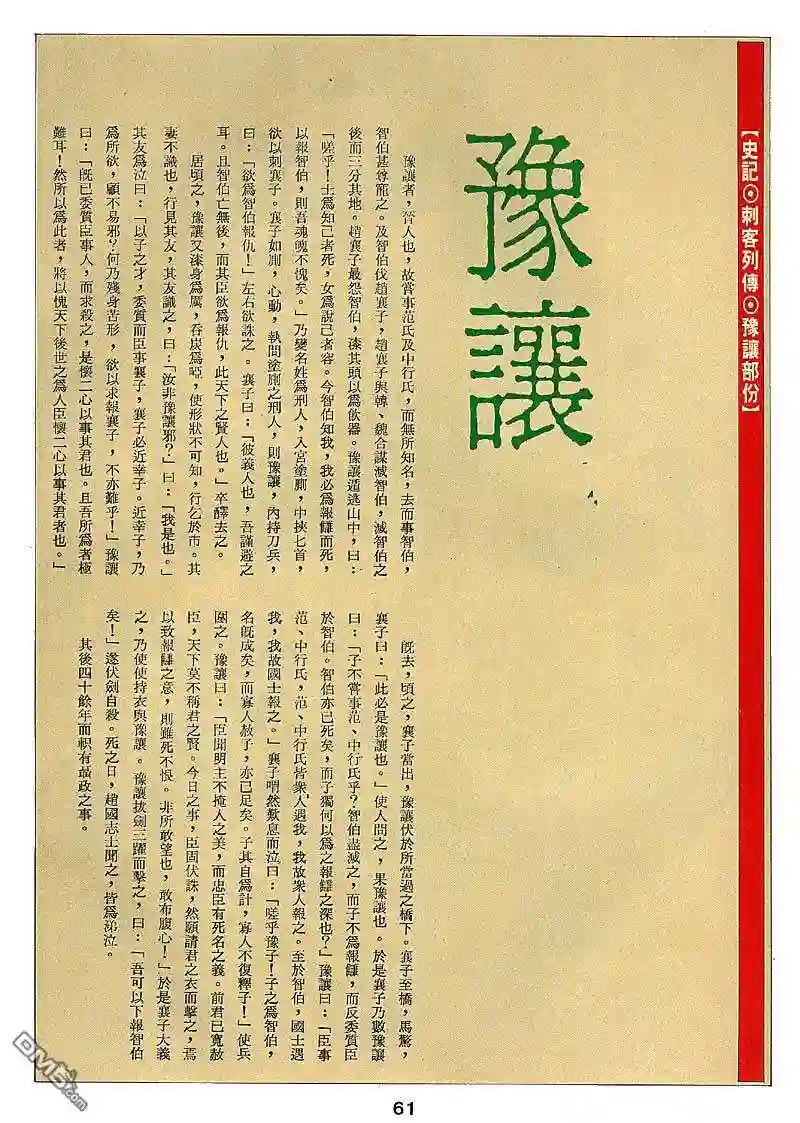 【史記◎刺客列傳◎豫讓部份】
豫讓
豫讓者，晉人也，故嘗事范氏及中行氏，而無所知名，去而事智伯，
智伯甚尊寵之。及智伯伐趙襄子，趙襄子與韓、魏合謀滅智伯，滅智伯之
後而三分其地。趙襄子最怨智伯，漆其頭以為飲器。豫讓遁逃山中，曰：
「嗟乎！士為知己者死，女為說己者容。今智伯知我，我必為報讎而死，
以報智伯，則吾魂魄不愧矣。」乃變名姓為刑人，入宮塗廁，中挾匕首，
欲以刺襄子。襄子如廁，心動，執問塗廁之刑人，則豫讓，內持刀兵，
曰：「欲為智伯報仇！」左右欲誅之。襄子曰：「彼義人也，吾謹避之
耳。且智伯亡無後，而其臣欲為報仇，此天下之賢人也。」卒醳去之。
居頃之，豫讓又漆身為厲，吞炭為啞，使形狀不可知，行乞於市。其
妻不識也，行見其友，其友識之，曰：「汝非豫讓邪？」曰：「我是也。」
其友為泣曰：「以子之才，委質而臣事襄子，襄子必近幸子。近幸子，乃
為所欲，顧不易邪？何乃殘身苦形，欲以求報襄子，不亦難乎！」豫讓
曰：「既已委質臣事人，而求殺之，是懷二心以事其君也。且吾所為者極
難耳！然所以為此者，將以愧天下後世之為人臣懷二心以事其君者也。」
既去，頃之，襄子當出，豫讓伏於所當過之橋下。襄子至橋，馬驚，
襄子曰：「此必是豫讓也。」使人問之，果豫讓也。於是襄子乃數豫讓
曰：「子不嘗事范、中行氏乎？智伯盡滅之，而子不為報讎，而反委質臣
於智伯。智伯亦已死矣，而子獨何以為之報讎之深也？」豫讓曰：「臣事
范、中行氏，范、中行氏皆衆人遇我，我故衆人報之。至於智伯，國士遇
我，我故國士報之。」襄子喟然歎息而泣曰：「嗟乎豫子！子之為智伯，
名既成矣，而寡人赦子，亦已足矣。子其自為計，寡人不復釋子！」使兵
圍之。豫讓曰：「臣聞明主不掩人之美，而忠臣有死名之義。前君已寬赦
臣，天下莫不稱君之賢。今日之事，臣固伏誅，然願請君之衣而擊之，焉
以致報讎之意，則雖死不恨。非所敢望也，敢布腹心！」於是襄子大義
之，乃使使持衣與豫讓。豫讓拔劍三躍而擊之，曰：「吾可以下報智伯
矣！」遂伏劍自殺。死之日，趙國志士聞之，皆為涕泣。
其後四十餘年而軹有聶政之事。
61